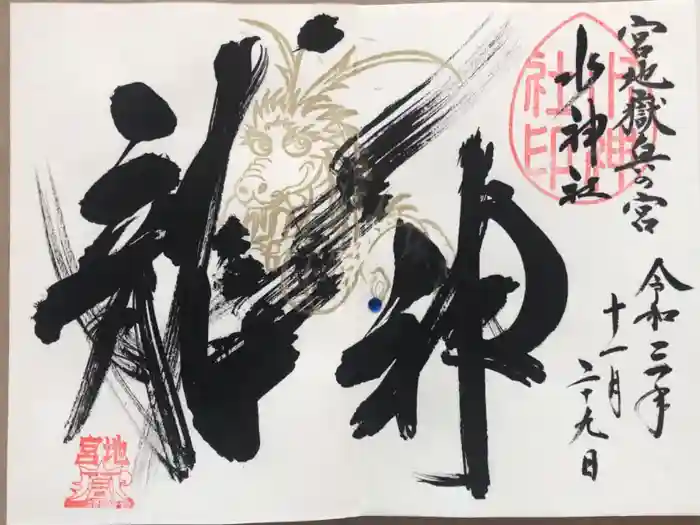 宮地嶽奥の宮
水神社
令和三年
十一月
二十九日
龍神
水神社印
宮地
嶽